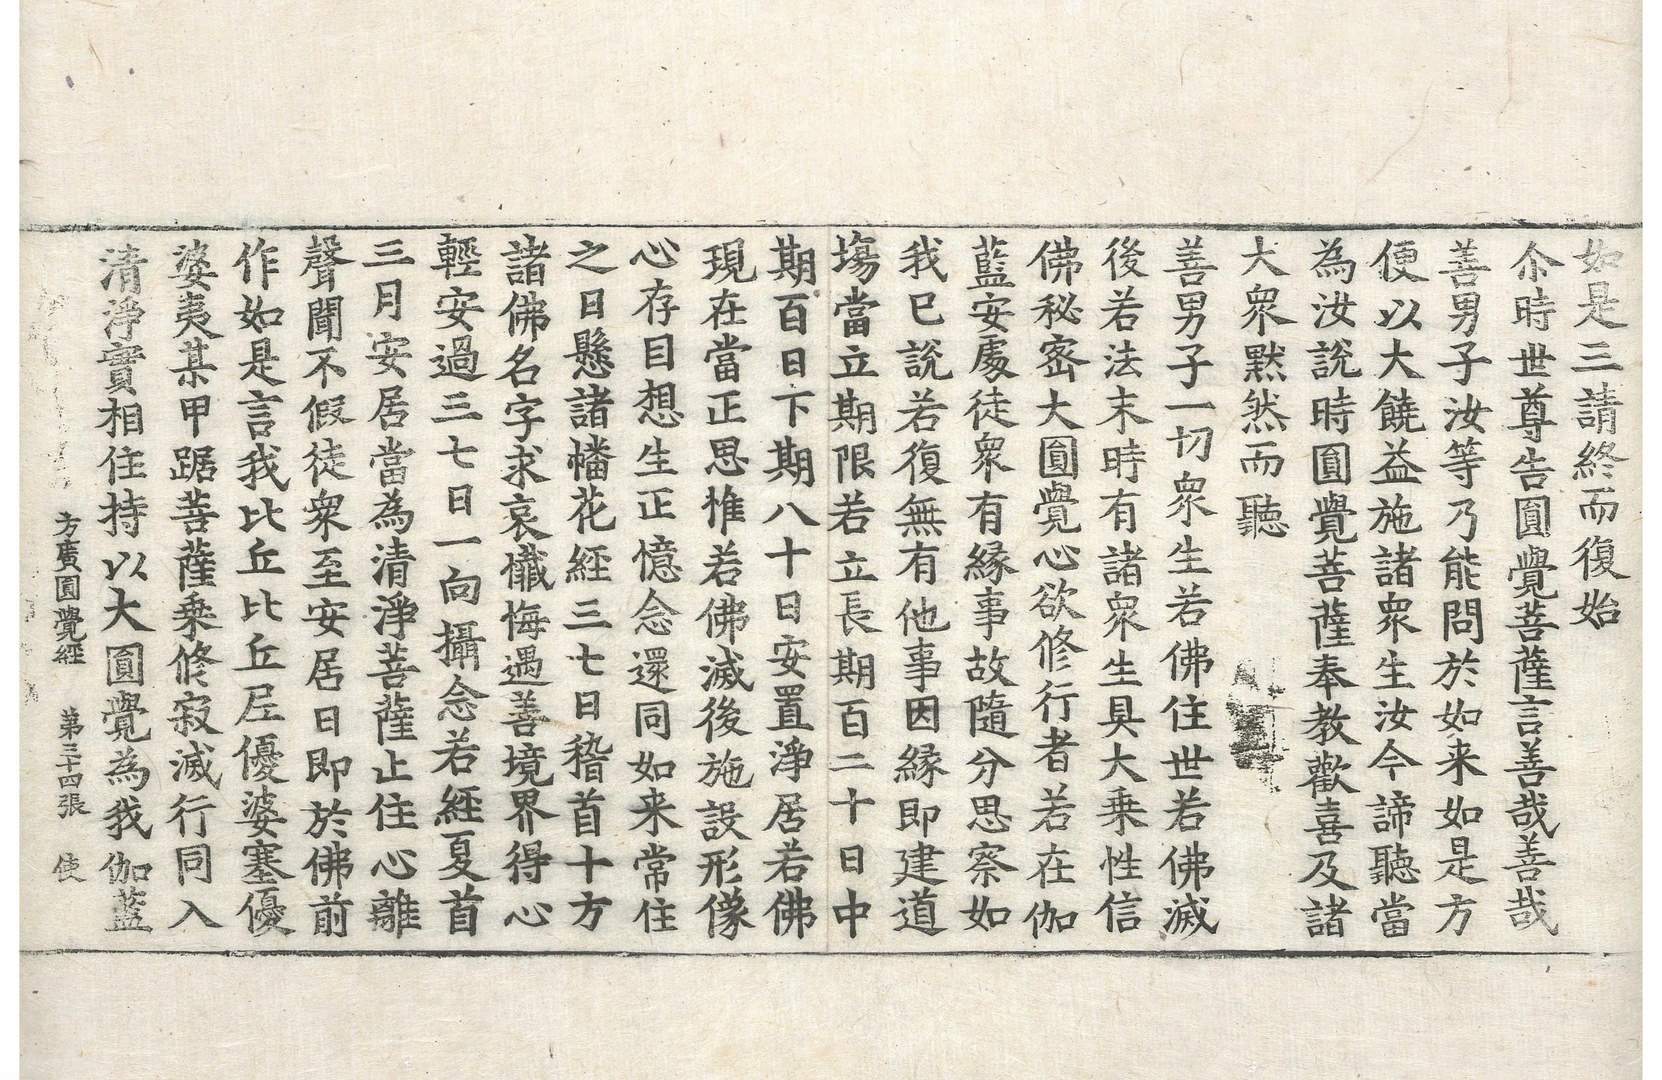 如是三請終而復始
尒時世尊告圎覺菩薩言善哉善哉
善男子汝等乃能問於如来如是方
便以大饒益施諸衆生汝今諦聽當
為汝說時圎覺菩薩奉教歡喜及諸
大衆黙然而聽
善男子一切衆生若佛住世若佛滅
後若法末時有諸衆生具大乗性信
佛秘密大圎覺心欲修行者若在伽
藍安處徒衆有緣事故隨分思察如
我已說若復無有他事因緣即建道
塲當立期限若立長期百二十日中
期百日下期八十日安置淨居若佛
現在當正思惟若佛滅後施設形像
心存目想生正憶念還同如来常住
之日懸諸幡花經三七日稽首十方
諸佛名字求哀懺悔遇善境界得心
輕安過三七日一向攝念若經夏首
三月安居當為清淨菩薩止住心離
聲聞不假徒衆至安居日即於佛前
作如是言我比丘比丘尼優婆塞優
婆夷某甲踞菩薩乗修寂滅行同入
清淨實相住持以大圎覺為我伽藍
方廣圎覺經 第三十四張 使